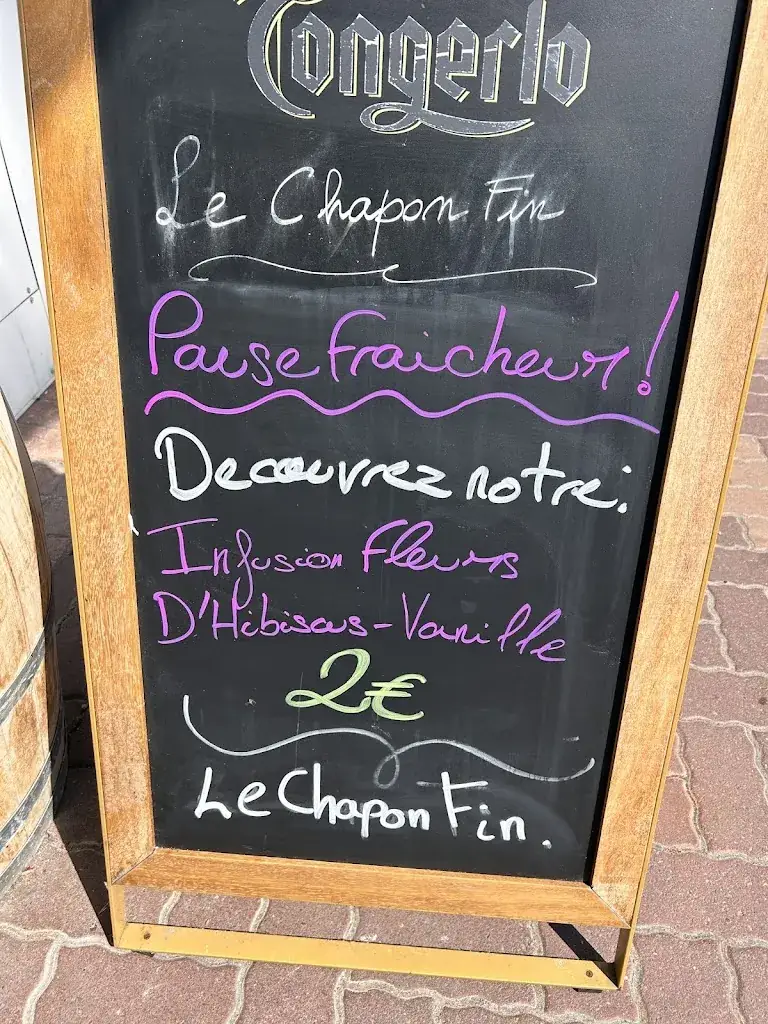 Tongerlo
Le Chapon Fin
Pause Fraicheur!
Decouvrez notre:
Infusion Fleurs
D'Hibiscus-Vanille
2€
Le Chapon Fin.